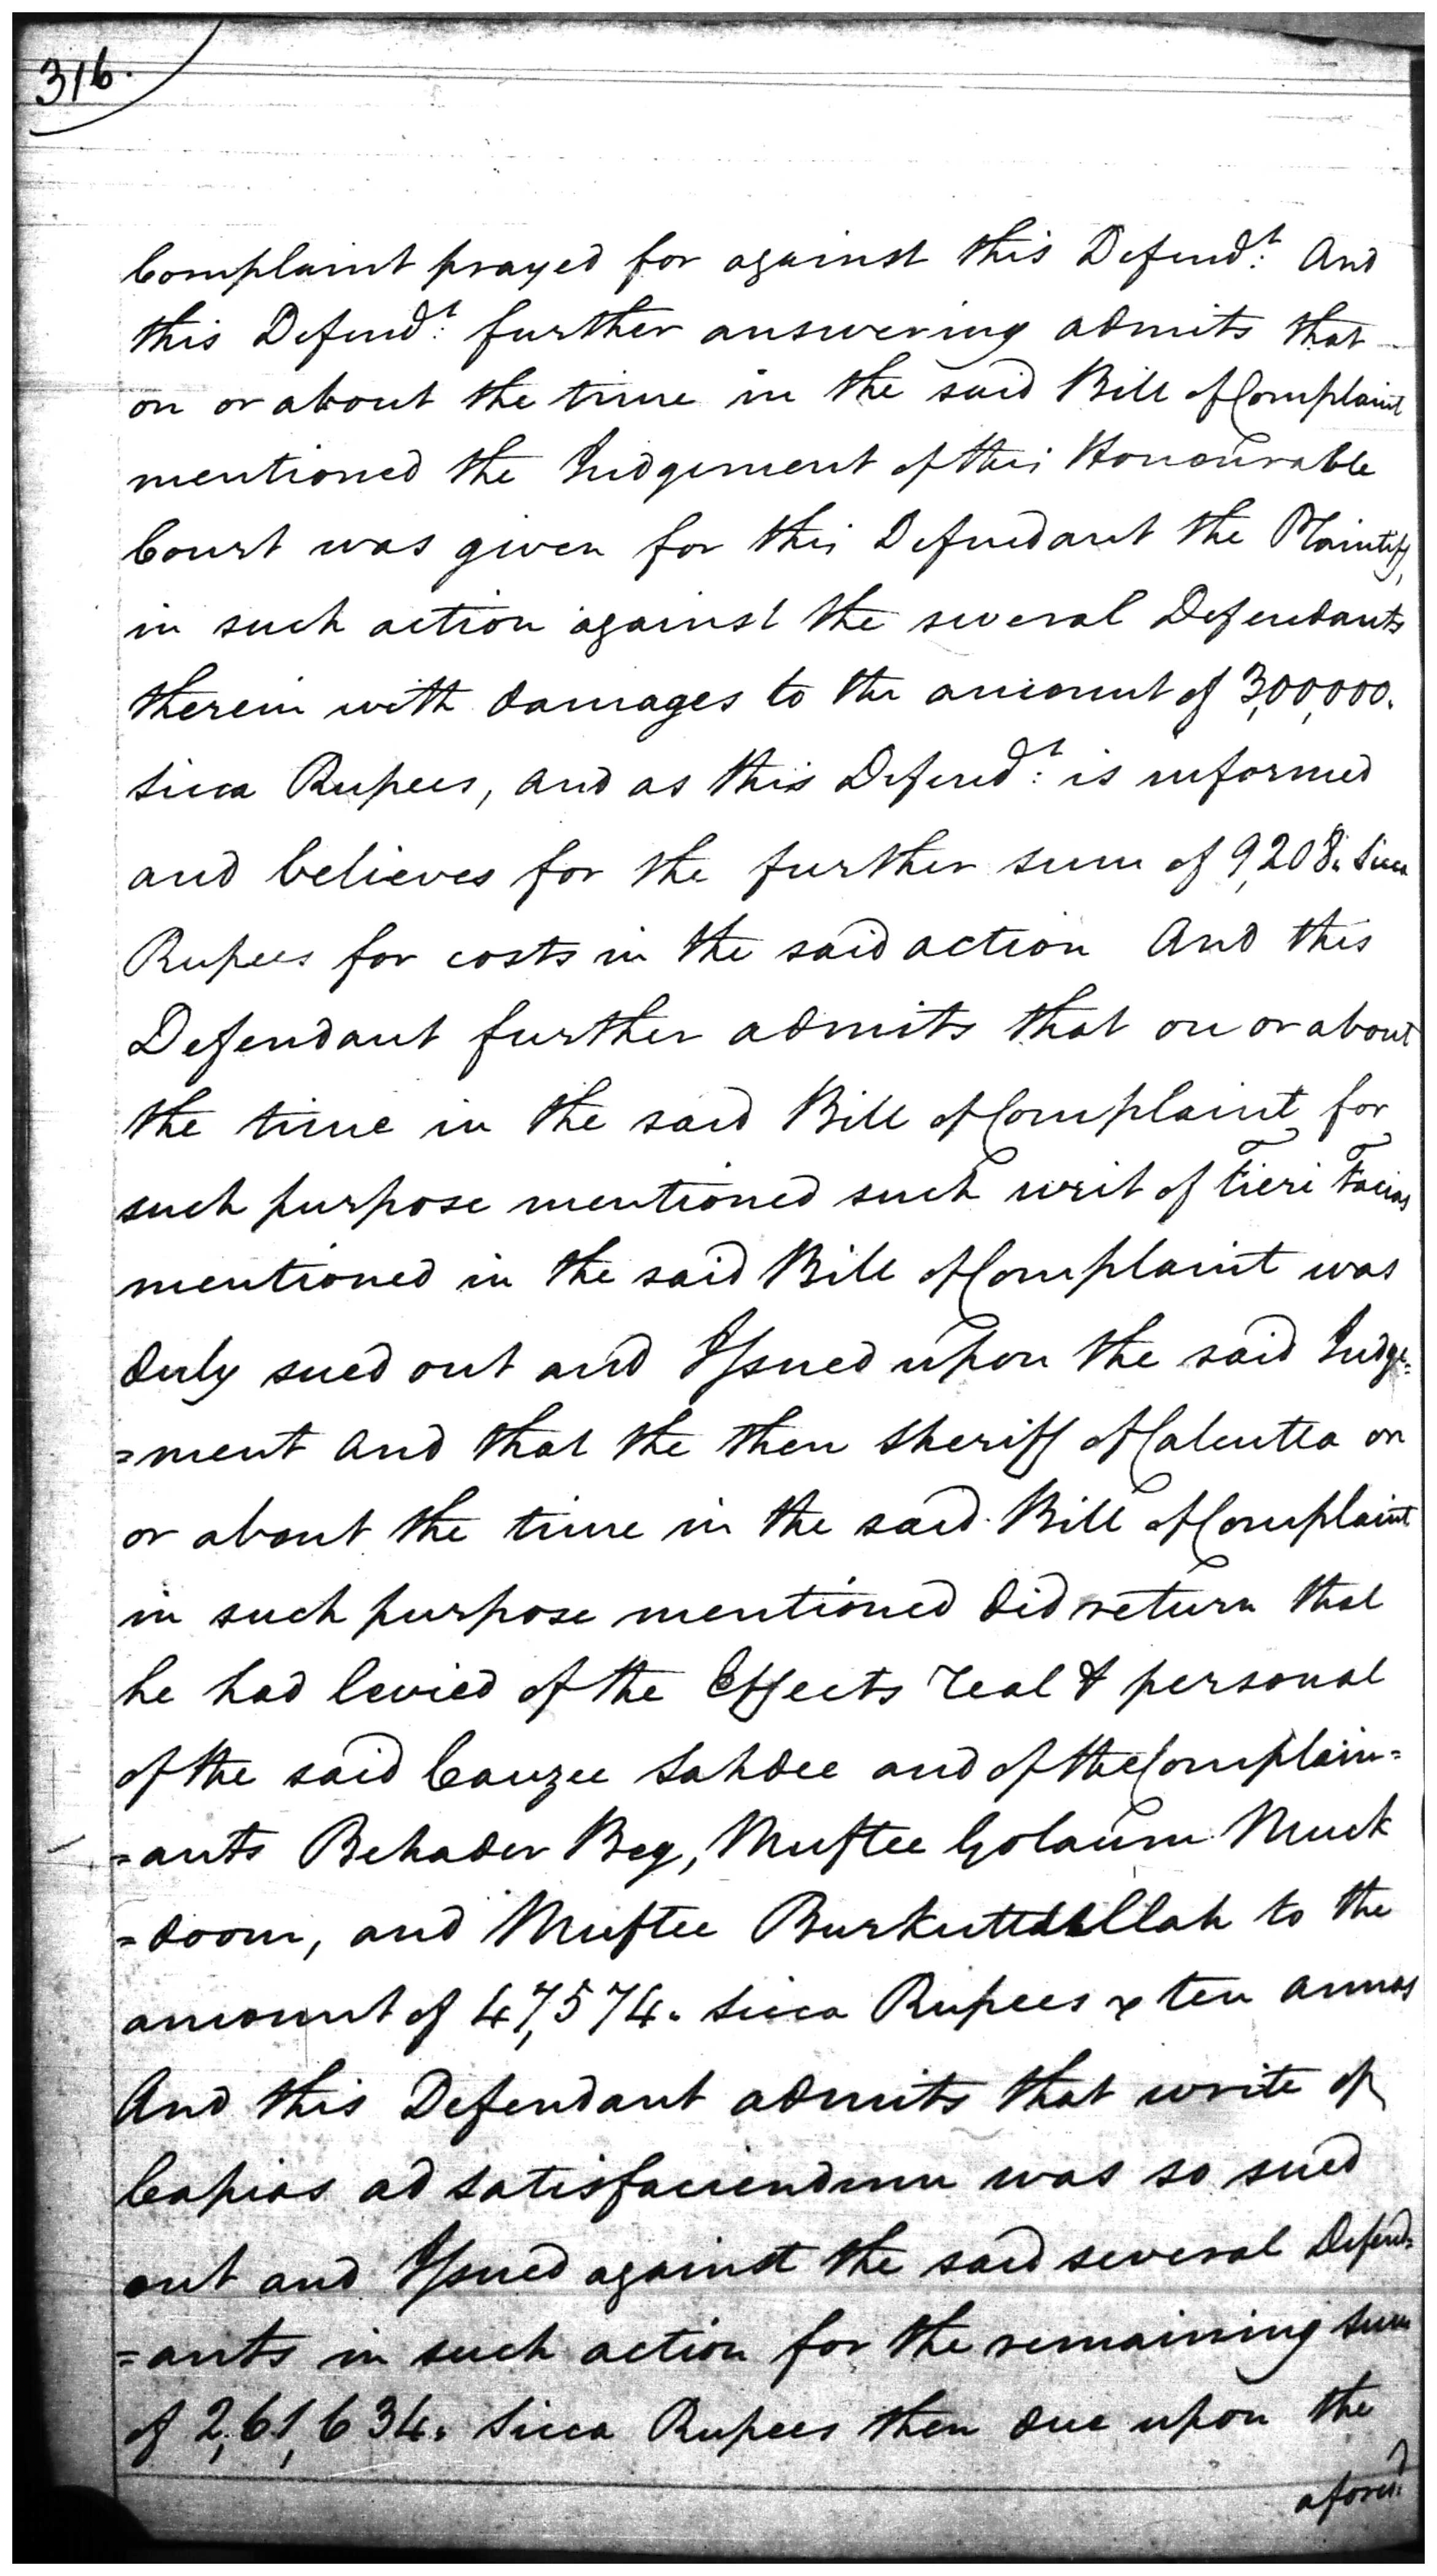 316.
Complaint prayed for against this Defend:t And
this Defend:t further answering admits that
on or about the time in the said Bill of Complaint
mentioned the Judgement of this Honourable
Court was given for this Defendant the Plaintiff,
in such action against the several Defendants
therein with damages to the amount of 3,00,000.
Sicca Rupees, and as this Defend:t is informed
and believes for the further sum of 9,208. Sicca
Rupees for costs in the said action And this
Defendant further admits that on or about
the time in the said Bill of Complaint for
such purpose mentioned such writ of Fieri Facias
mentioned in the said Bill of Complaint was
duly sued out and Issued upon the said Judge=
=ment and that the then Sheriff of Calcutta on
or about the time in the said Bill of Complaint
in such purpose mentioned did return that
he had levied of the Effects real & personal
of the said Cauzee Sahdee and of the Complain=
=ants Behader Beg, Muftee Golaum Muck
=doom, and Muftee Burkutullah to the
amount of 47,574. Sicca Rupees & ten annas
And this Defendant admits that write of
Capias ad satisfaciendum was so sued
out and Issued against the said several Defend=
=ants in such action for the remaining sum
of 2,61,634. Sicca Rupees then due upon the
afores:d